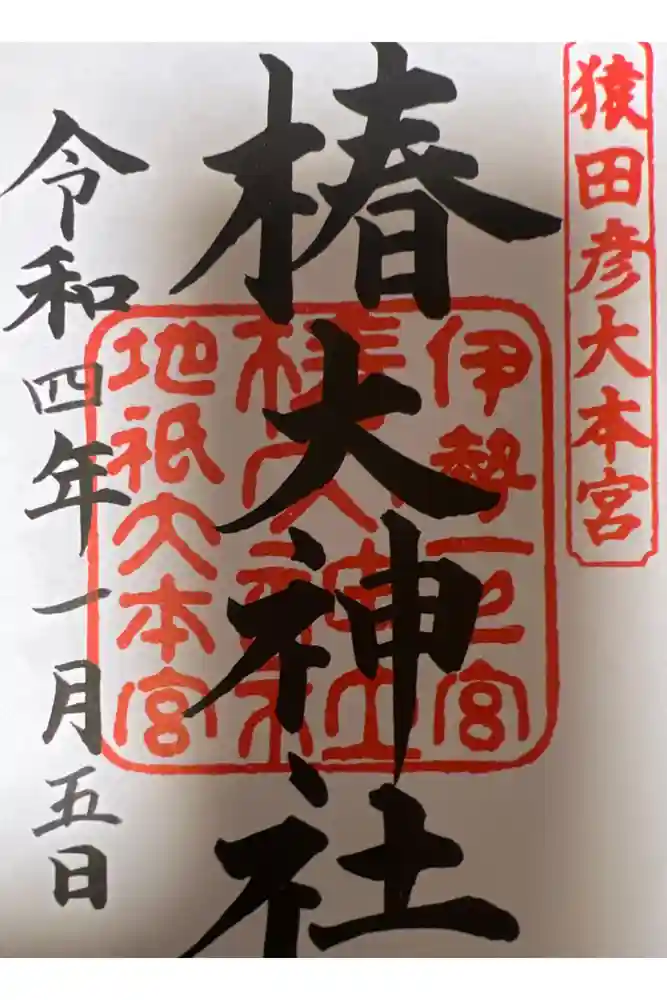 猿田彦大本宮
椿大神社
伊勢一之宮
椿大神社
地祇大本宮
令和四年一月五日